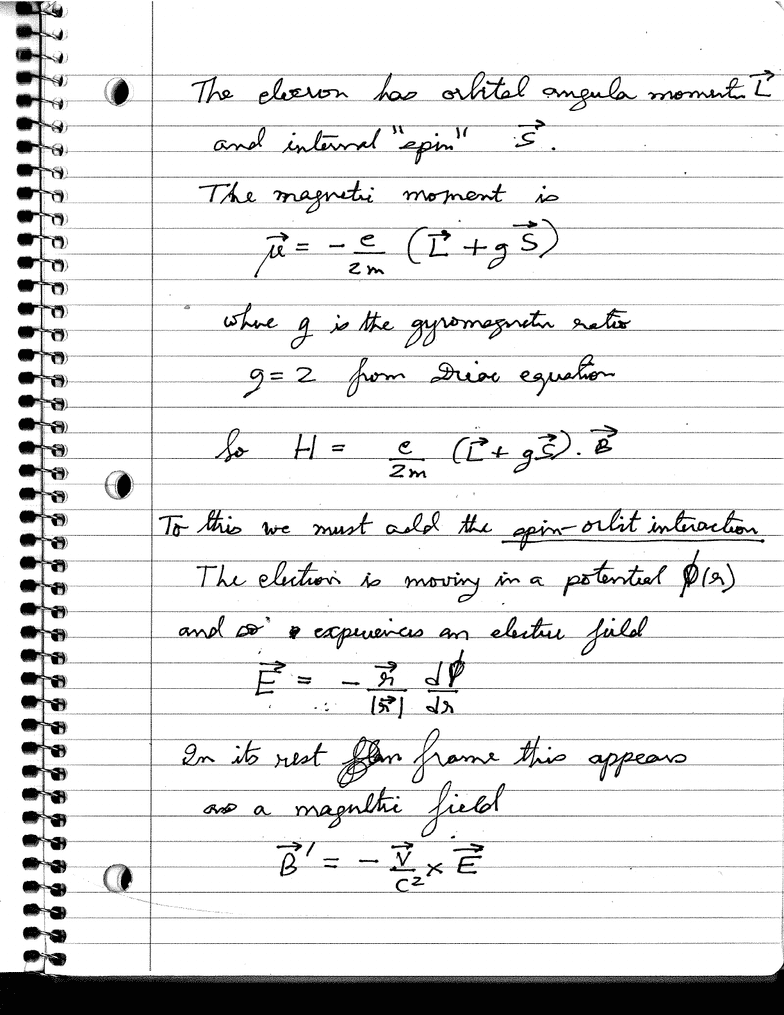 The elecron has orbital angula momentu L⃗
and internal "spin" S⃗.
The magnetic moment is
μ⃗ = - e/2m (L⃗ + g S⃗)
where g is the gyromagnetic ratio
g = 2 from Driac equation
So H = e/2m (L⃗ + g S⃗) . B⃗
To this we must add the spin-orbit interaction
The electron is moving in a potential ϕ(r)
and so experiences an electric field
E⃗ = - r⃗/|r⃗| dϕ/dr
In its rest frame this appears
as a magnetic field
B⃗' = - v⃗/c² × E⃗